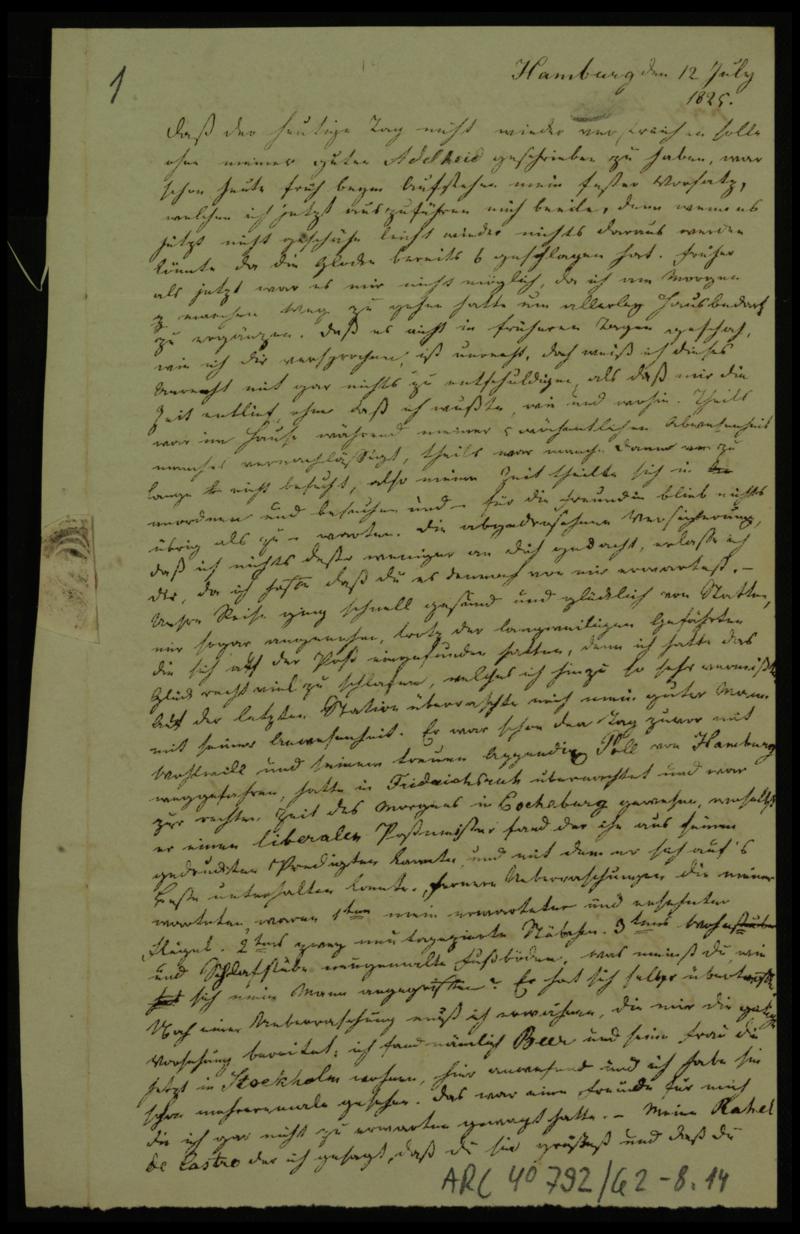 1
Hamburg den 12 July
1825.
Daß der heutige Tag nicht wieder verstreichen solle
ohne meiner guten Adelheid geschrieben zu haben, war
schon heute früh beym Aufstehen mein fester Vorsatz,
welchen ich jetzt auszuführen mich beeile, denn wenn es
jetzt nicht geschähe leicht wieder nichts daraus werden
könnte da die Glocke bereits 6 geschlagen hat. Früher
als jetzt war es mir nicht möglich, da ich am Morgen
manchen Weg zu gehen hatte um allerley Hausbedarf
zu ergänzen. Daß es nicht in früheren Tagen geschah,
wie ich dir versprochen, ist unrecht, doch weiß ich dieses
Unrecht mit gar nichts zu entschuldigen, als daß mir die
Zeit entlief, ohne daß ich wußte, wie und wohin. Theils
war im Hause während meiner 5 wöchentlichen Abwesenheit
manches vernachlässigt, theils war manche Dame zu
lange nicht besucht, also meine Zeit theilte sich in
anordnen und besuchen und – für die Freundin blieb nichts
übrig als zu – warten. Die abgedroschene Versicherung,
daß ich nichts desto weniger an dich gedacht, erlasse ich
dir, da ich hoffe daß du es dennoch von mir erwartest. –
Unsre Reise ging schnell gesund und glücklich von Statten,
mir sogar angenehm, trotz der langweiligen Gefährten
die sich auf der Post eingefunden hatten, denn ich hatte das
Glück recht viel zu schlafen, welches ich hinzu so sehr vermißte
Auf der letzten Station überraschte mich mein guter Mann
mit seiner Anwesenheit. Er war schon den Tag zuvor mit
Wohlwill und seinem treuen Appendix Poll von Hamburg
weggefahren, hatte in Fridrichsruh übernachtet und war
zur rechten Zeit des Morgens in Escheburg gewesen, woselbst
er einen liberalen Postmeister fand der ihn aus seinen
gedruckten Predigten kannte und mit dem er sich auf's
Beste unterhalten konnte. Fernere Ueberraschungen die meiner
warteten, waren 1tens mein erwarteter und ersehnter
Flügel. 2tens zwey neu tapezierte Stübchen. 3tens Wohnstube
und Schlafstube neugemalte Fußböden, was meinst du, wie
sich mein Mann angegriffen? Er hat sich selber übertroffen
Noch einer Ueberraschung muß ich erwähnen, die mir die gütige
Vorsehung bereitet; ich fand nämlich Beer und seine Frau die
jetzt in Stockholm wohnen, hier anwesend und ich habe sie
schon mehreremale gesehen. Das war eine Freude für mich
die ich gar nicht zu erwarten gewagt hatte. – Meine Rahel
de Castro der ich gesagt, daß du sie grüßest und daß du
ARC 4° 792/G2-8.14